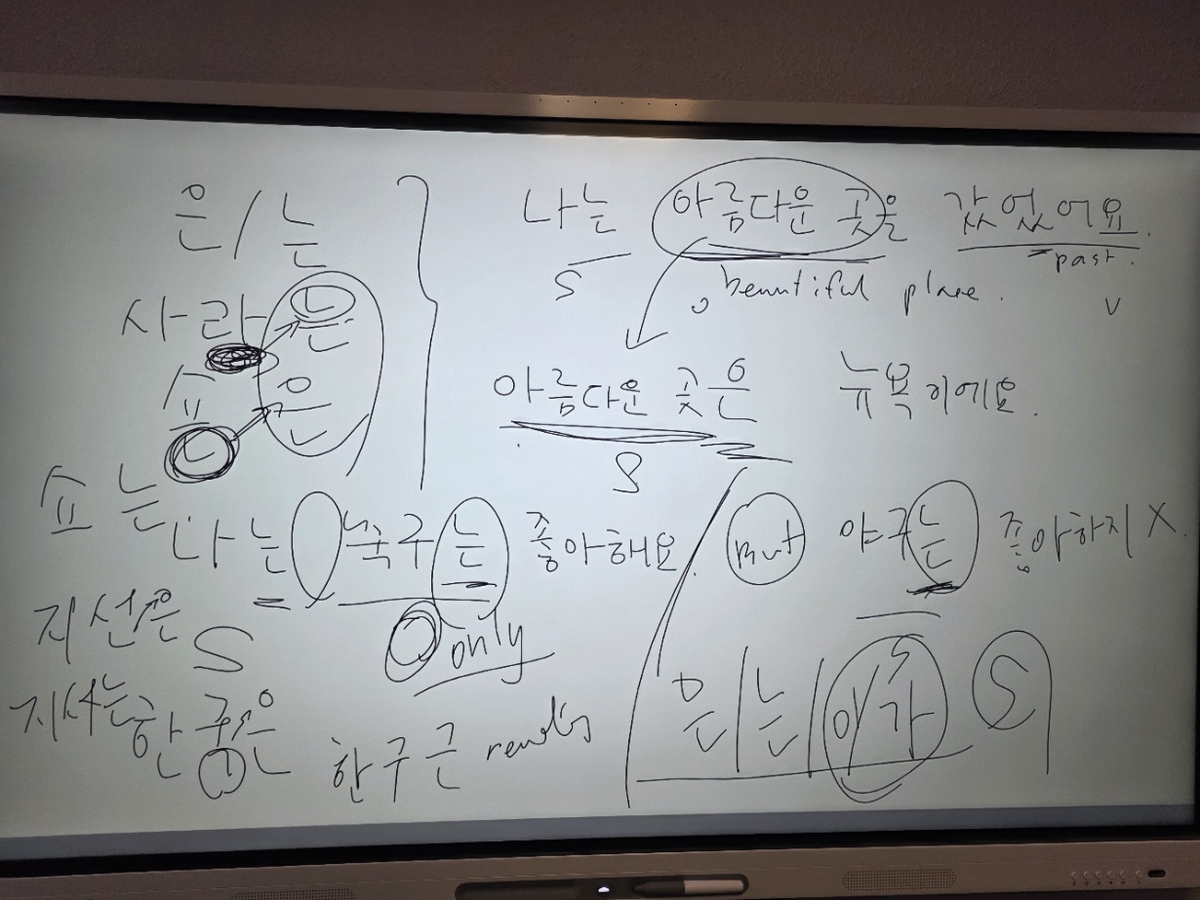 은/는
사라는
숀은
숀는
나는 아름다운 곳을 갔었어요.
S beautiful place. past. V
아름다운 곳은 뉴욕이에요.
S
나는 축구는 좋아해요. But 야구는 좋아하지 X.
S only
지선은
지사는
한국은 한구근
은/는/이/가 S